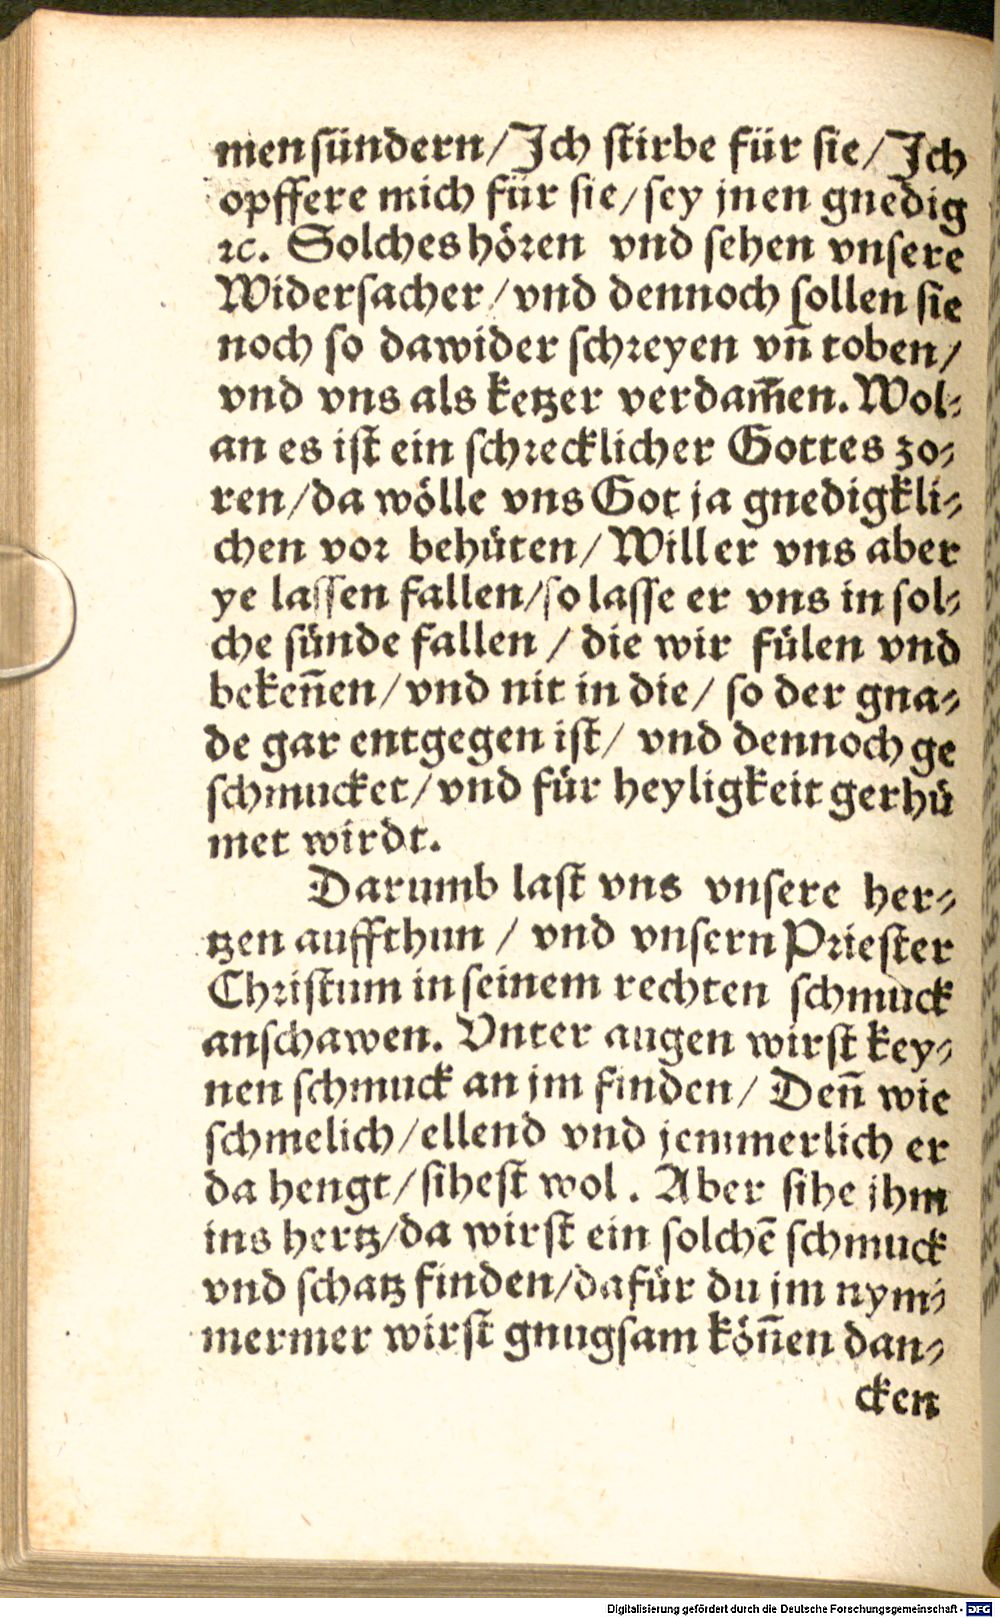 men sündern/ Jch stirbe für sie/ Jch
opffere mich für sie/ sey jnen gnedig
ꝛc. Solches hören vnd sehen vnsere
Widersacher/ vnd dennoch sollen sie
noch so dawider schreyen vñ toben/
vnd vns als ketzer verdam̃en. Wol-
an es ist ein schrecklicher Gottes zo-
ren/ da wölle vns Got ja gnedigkli-
chen vor behüten/ Will er vns aber
ye lassen fallen/ so lasse er vns in sol-
che sünde fallen / die wir fülen vnd
bekeñen/ vnd nit in die/ so der gna-
de gar entgegen ist/ vnd dennoch ge
schmucket/ vnd für heyligkeit gerhü
met wirdt.
Darumb last vns vnsere her-
tzen auffthun / vnd vnsern Priester
Christum in seinem rechten schmuck
anschawen. Vnter augen wirst key-
nen schmuck an jm finden/ Deñ wie
schmelich/ ellend vnd jemmerlich er
da hengt/ sihest wol. Aber sihe jhm
ins hertz/ da wirst ein solchē schmuck
vnd schatz finden/ dafür du jm nym-
mermer wirst gnugsam köñen dan-
cken
Digitalisierung gefördert durch die Deutsche Forschungsgemeinschaft - DFG